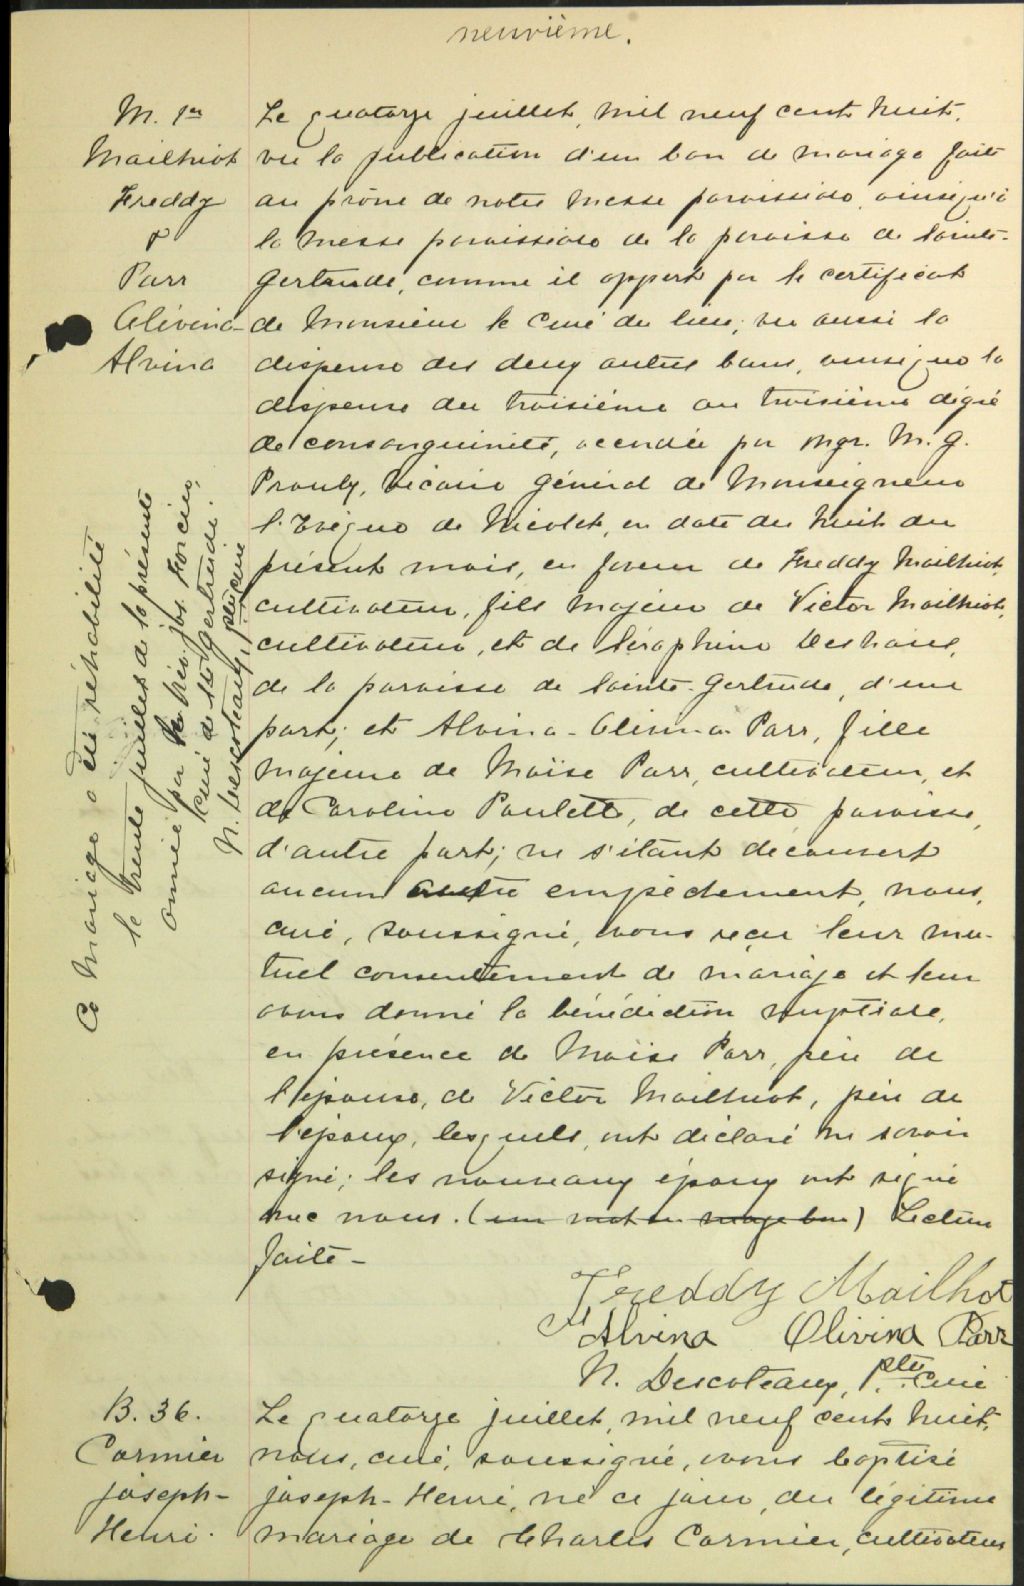 neuvième.
M. 1er
Mailhiot
Freddy
&
Parr
Olivina-
Alvina
Le quatorze juillet, mil neuf cent huit,
vu la publication d'un ban de mariage faite
au prône de notre messe paroissiale, ainsi qu'à
la messe paroissiale de la paroisse de Sainte-
Gertrude, comme il appert par le certificat
de Monsieur le Curé du lieu; vu aussi la
dispense des deux autres bans, ainsi que la
dispense du troisième au troisième degré
de consanguinité, accordée par Mgr. M. G.
Proulx, Vicaire Général de Monseigneur
l'Evêque de Nicolet, en date du huit du
présent mois, en faveur de Freddy Mailhiot,
cultivateur, fils majeur de Victor Mailhiot,
cultivateur, et de Séraphine Deshaies,
de la paroisse de Sainte-Gertrude, d'une
part; et Alvina-Olivina Parr, fille
majeure de Moïse Parr, cultivateur, et
de Caroline Paulette, de cette paroisse,
d'autre part; ne s'étant découvert
aucun autre empêchement, nous,
curé, soussigné, avons reçu leur mu-
tuel consentement de mariage et leur
avons donné la bénédiction nuptiale,
en présence de Moïse Parr, père de
l'épouse, de Victor Mailhiot, père de
l'époux, lesquels ont déclaré ne savoir
signé; les nouveaux époux ont signé
avec nous. (un mot en marge bon) Lecture
faite-
Freddy Mailhot
Alvina Olivina Parr
N. Descoteaux, Ptre. Curé
Ce mariage a été réhabilité
le trente juillet de la présente
année par le Rév. Jos. Forcier,
curé de Ste Gertrude.
N. Descoteaux, Ptre curé
B. 36.
Cormier
Joseph-
Henri.
Le quatorze juillet, mil neuf cent huit,
nous, curé, soussigné, avons baptisé
Joseph-Henri, né ce jour, du légitime
mariage de Charles Cormier, cultivateur